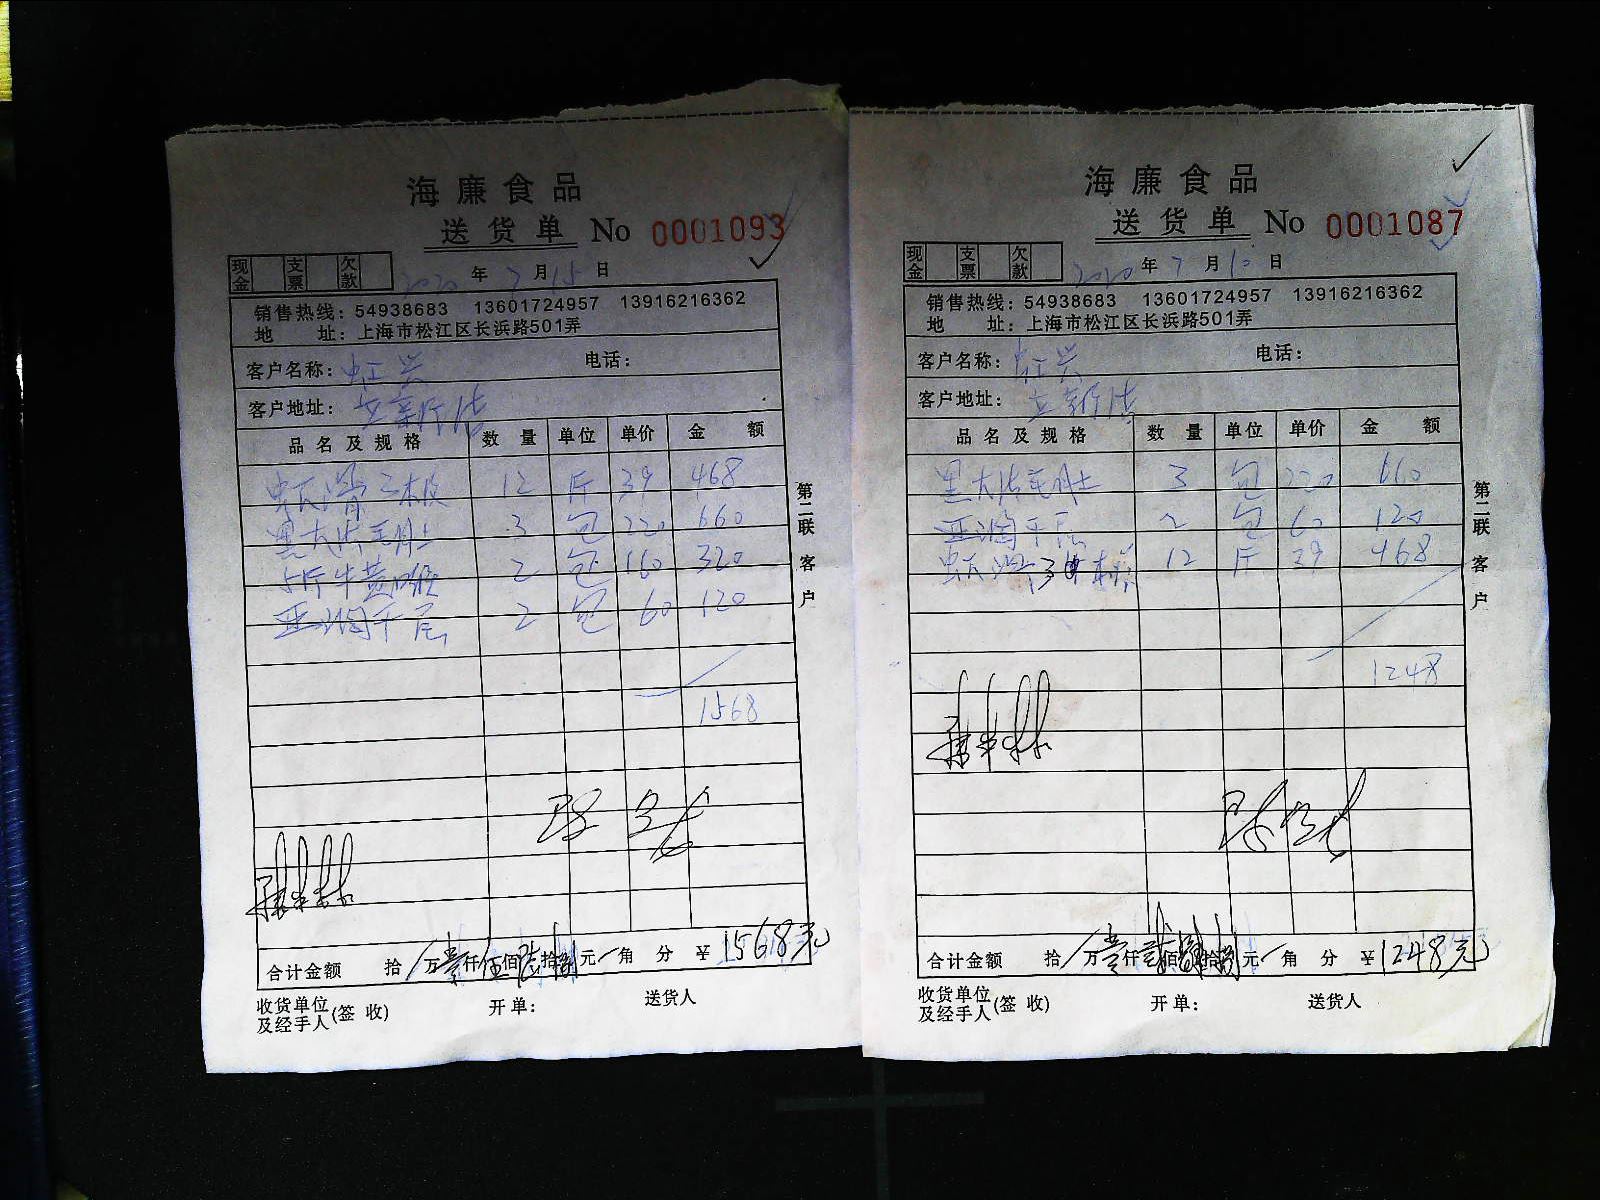 海廉食品
送货单 No 0001093
现金 支票 欠款 2020年7月15日
销售热线：54938683 13601724957 13916216362
地 址：上海市松江区长浜路501弄
客户名称： 兴
电话：
客户地址：
品名及规格 数量 单位 单价 金额
12 斤 39 468
黑大 毛肚 3 包 220 660
5斤牛黄喉 2 包 160 320
千层 2 包 60 120
1568
合计金额 拾/万壹仟伍佰陆拾捌元/角 分 ￥1568元
收货单位及经手人(签收) 开单： 送货人
第二联 客户
海廉食品
送货单 No 0001087
现金 支票 欠款 2020年7月10日
销售热线：54938683 13601724957 13916216362
地 址：上海市松江区长浜路501弄
客户名称： 兴
电话：
客户地址：
品名及规格 数量 单位 单价 金额
黑大 毛肚 3 包 220 660
千层 2 包 60 120
12 斤 39 468
1248
合计金额 拾/万壹仟贰佰肆拾捌元/角 分 ￥1248元
收货单位及经手人(签收) 开单： 送货人
第二联 客户